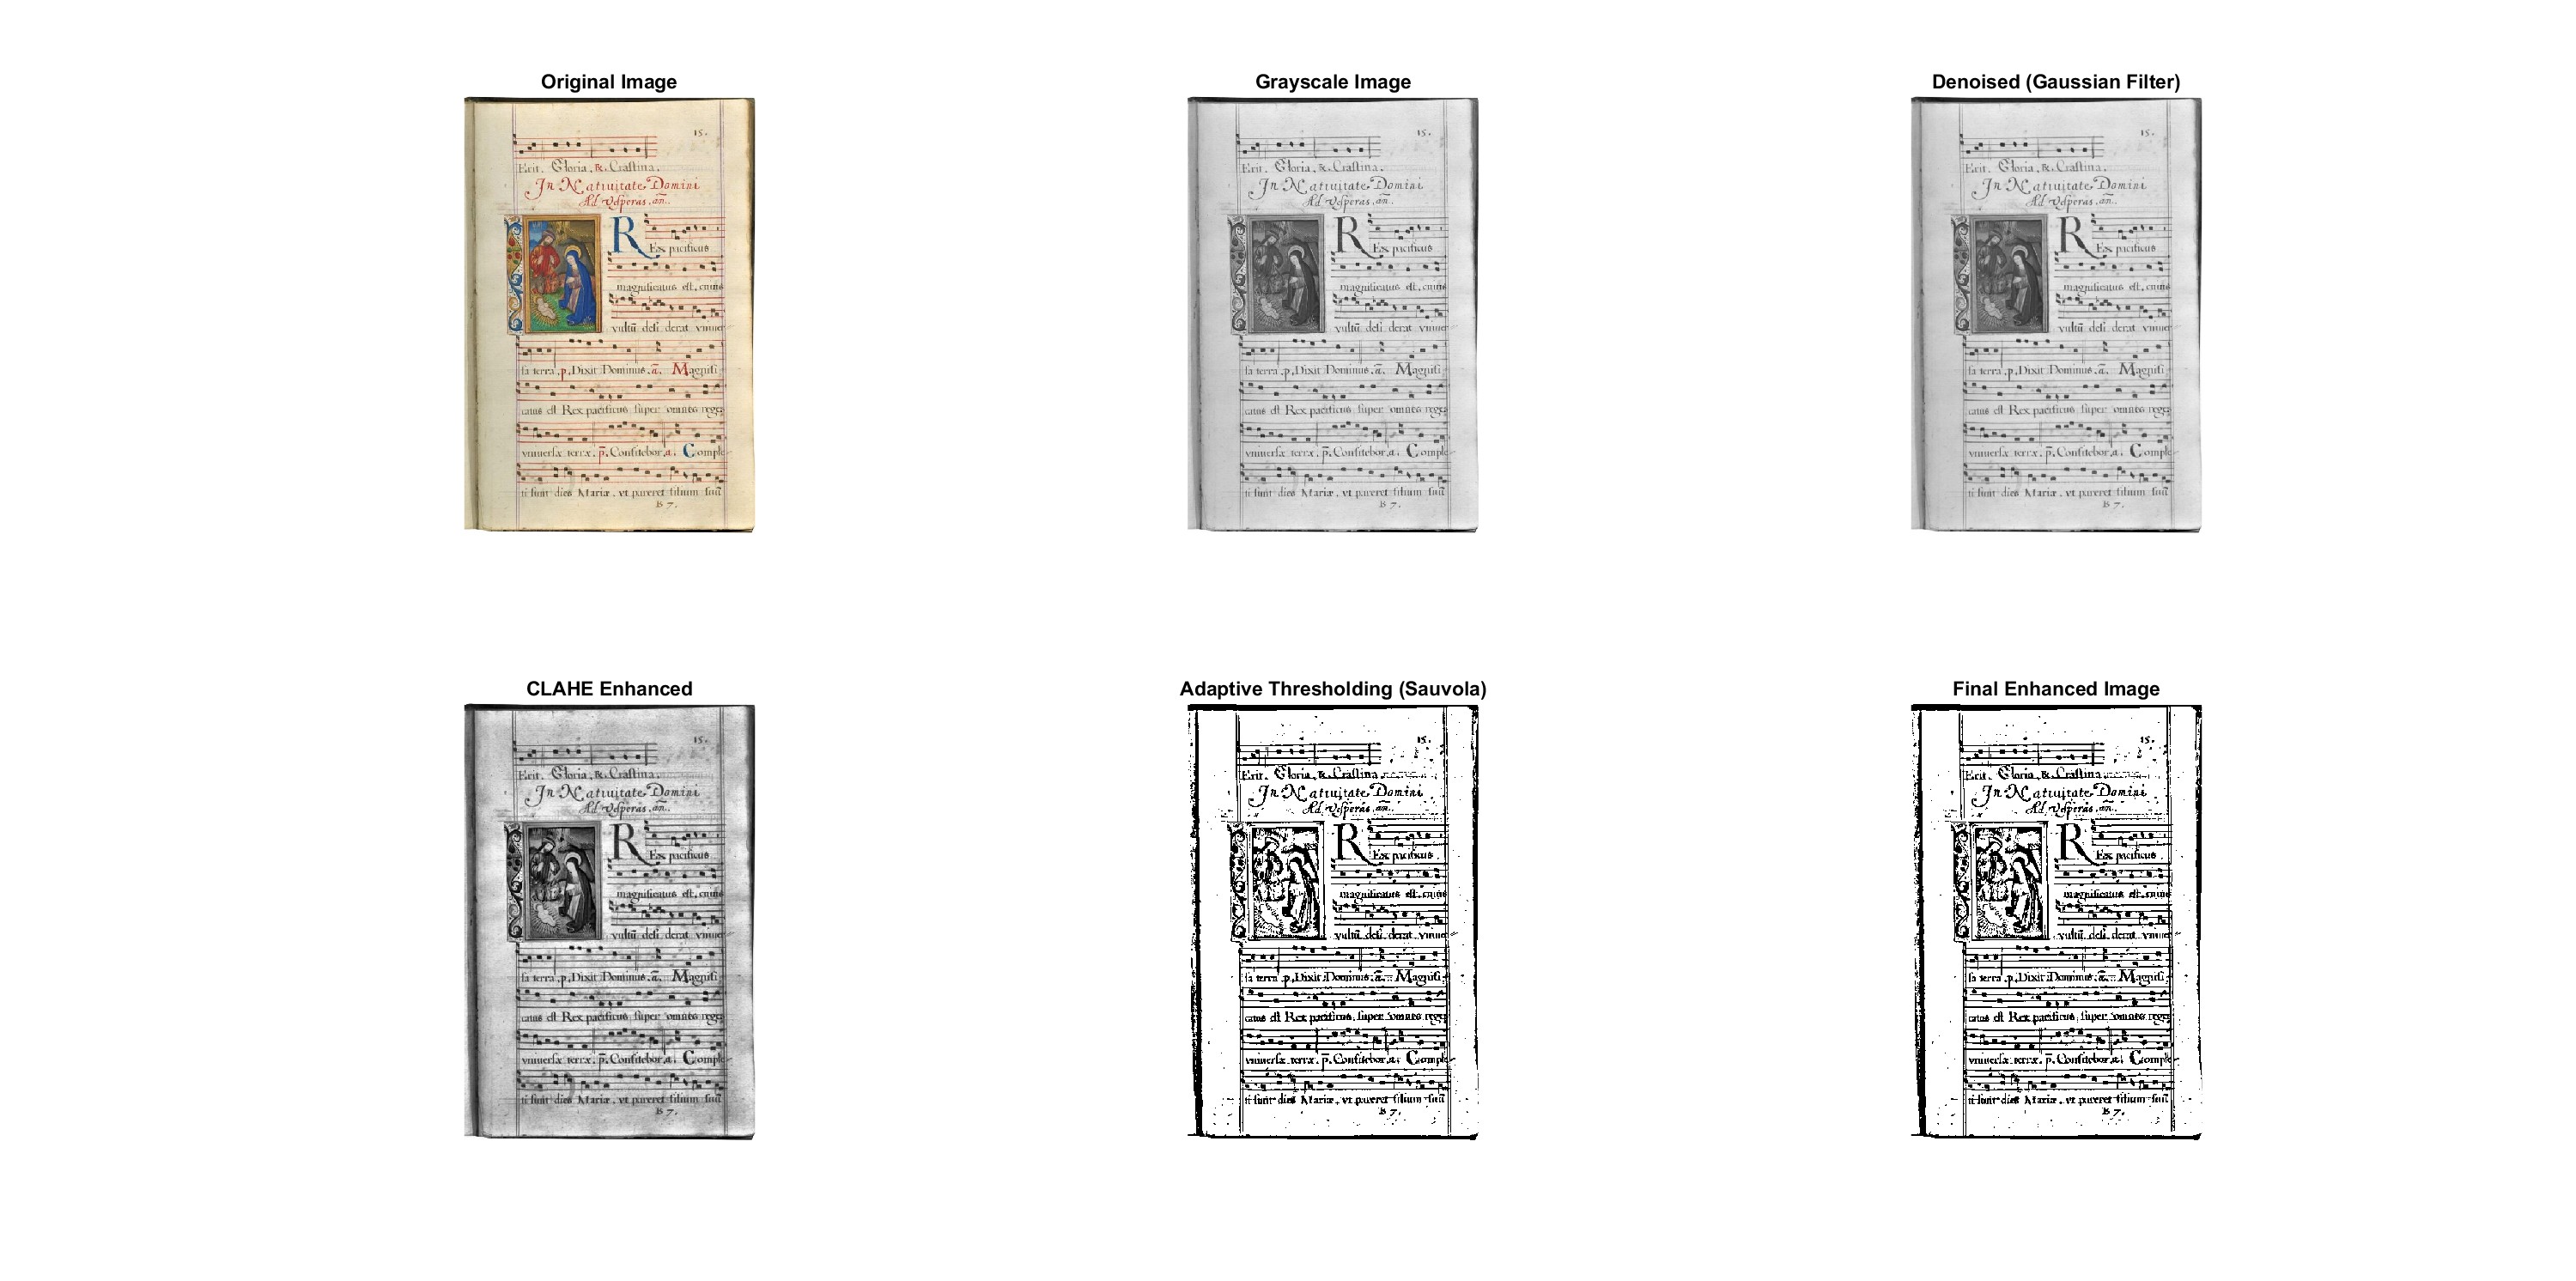 Original Image
15.
Erit. Gloria, & Crastina.
In Natiuitate Domini
Ad Vesperas. an.
R
Ex pacificus
magnificatus est, cuius
vultū desi derat vniuer
sa terra, p, Dixit Dominus. a. Magnifi
catus est Rex pacificus super omnes reges
vniuersæ terræ. p. Confitebor. a. Comple
ti sunt dies Mariæ, vt pareret filium suū
B 7.
Grayscale Image
15.
Erit. Gloria, & Crastina.
In Natiuitate Domini
Ad Vesperas. an.
R
Ex pacificus
magnificatus est, cuius
vultū desi derat vniuer
sa terra, p, Dixit Dominus. a. Magnifi
catus est Rex pacificus super omnes reges
vniuersæ terræ. p. Confitebor. a. Comple
ti sunt dies Mariæ, vt pareret filium suū
B 7.
Denoised (Gaussian Filter)
15.
Erit. Gloria, & Crastina.
In Natiuitate Domini
Ad Vesperas. an.
R
Ex pacificus
magnificatus est, cuius
vultū desi derat vniuer
sa terra, p, Dixit Dominus. a. Magnifi
catus est Rex pacificus super omnes reges
vniuersæ terræ. p. Confitebor. a. Comple
ti sunt dies Mariæ, vt pareret filium suū
B 7.
CLAHE Enhanced
15.
Erit. Gloria, & Crastina.
In Natiuitate Domini
Ad Vesperas. an.
R
Ex pacificus
magnificatus est, cuius
vultū desi derat vniuer
sa terra, p, Dixit Dominus. a. Magnifi
catus est Rex pacificus super omnes reges
vniuersæ terræ. p. Confitebor. a. Comple
ti sunt dies Mariæ, vt pareret filium suū
B 7.
Adaptive Thresholding (Sauvola)
15.
Erit. Gloria, & Crastina.
In Natiuitate Domini
Ad Vesperas. an.
R
Ex pacificus
magnificatus est, cuius
vultū desi derat vniuer
sa terra, p, Dixit Dominus. a. Magnifi
catus est Rex pacificus super omnes reges
vniuersæ terræ. p. Confitebor. a. Comple
ti sunt dies Mariæ, vt pareret filium suū
B 7.
Final Enhanced Image
15.
Erit. Gloria, & Crastina.
In Natiuitate Domini
Ad Vesperas. an.
R
Ex pacificus
magnificatus est, cuius
vultū desi derat vniuer
sa terra, p, Dixit Dominus. a. Magnifi
catus est Rex pacificus super omnes reges
vniuersæ terræ. p. Confitebor. a. Comple
ti sunt dies Mariæ, vt pareret filium suū
B 7.